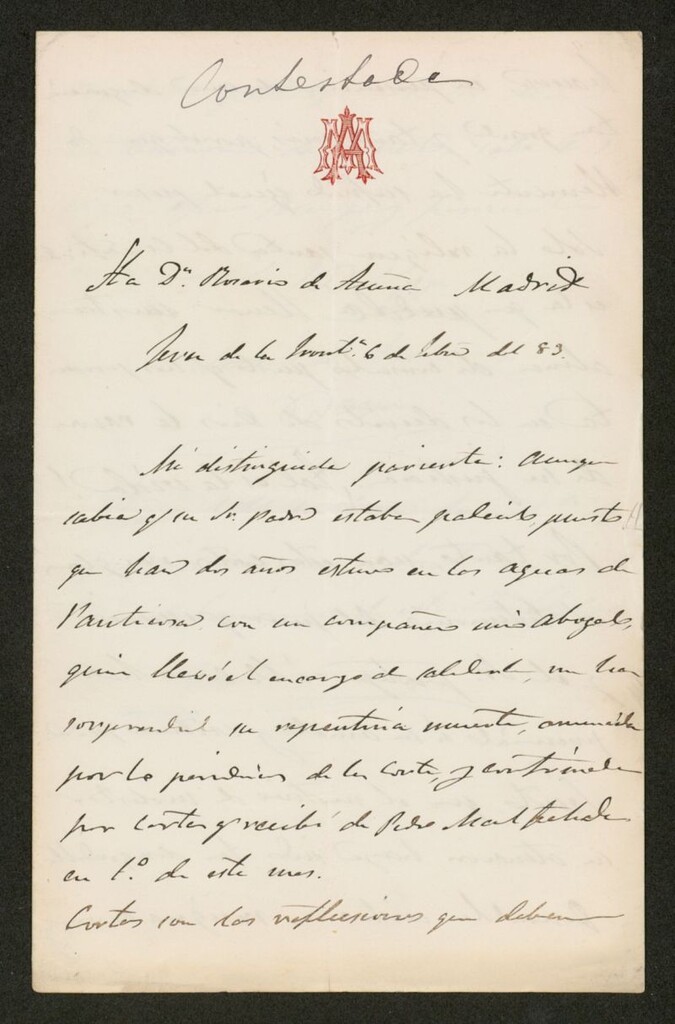 Contestada
Sta Dª. Rosario de Acuña Madrid
Jerez de la Front.ª 6 de Febr. del 83.
Mi distinguida parienta: Aunque
sabia q/ su Sr. padre estaba padeciendo, puesto
que hace dos años estuvo en las aguas de
Panticosa con un compañero mio Abogado,
quien llevó el encargo de saludarle, me ha
sorprendido su repentina muerte, anunciada
por los periódicos de la Corte, y confirmada
por cartas q/ recibí de Pedro
en 1º. de este mes.
Cortas son las reflecsiones que deben